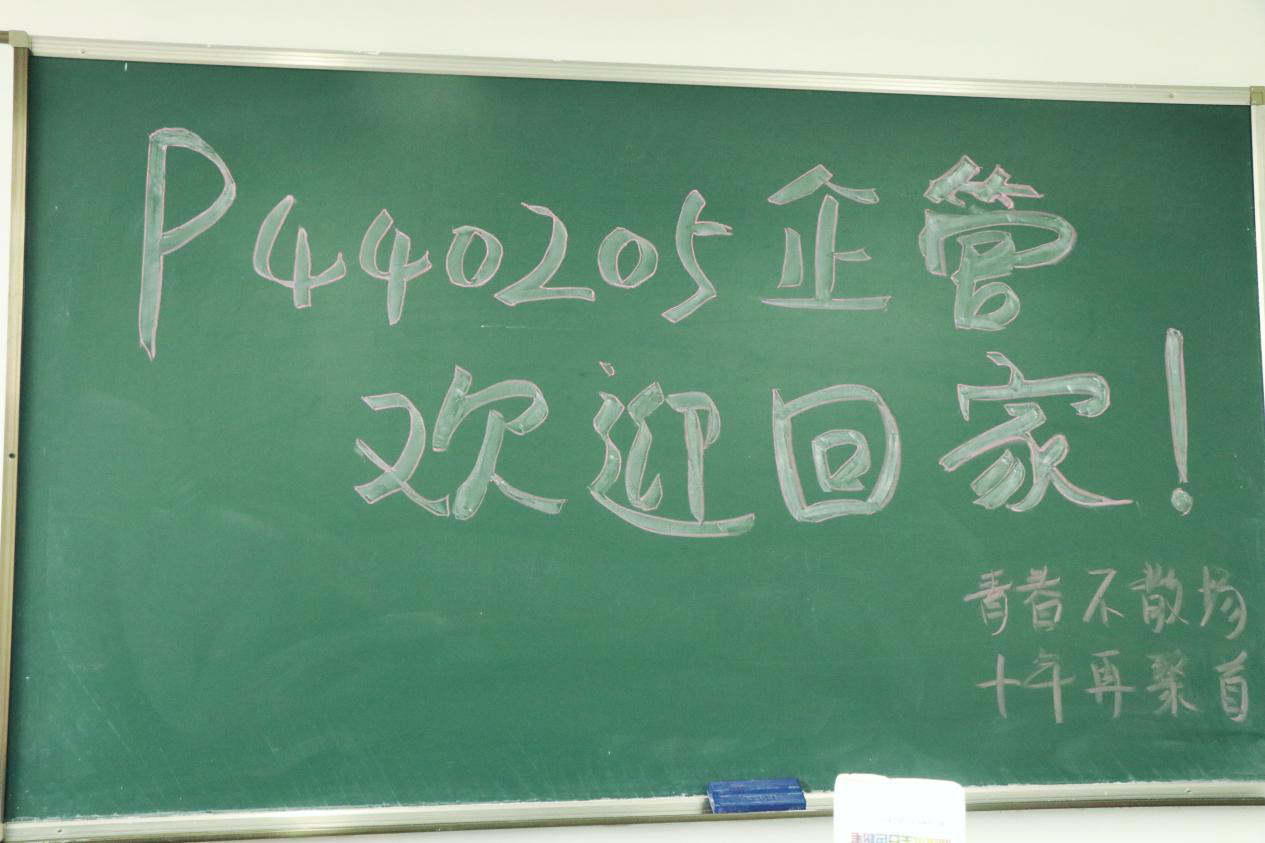 P440205企管
欢迎回家！
青春不散场
十年再聚首